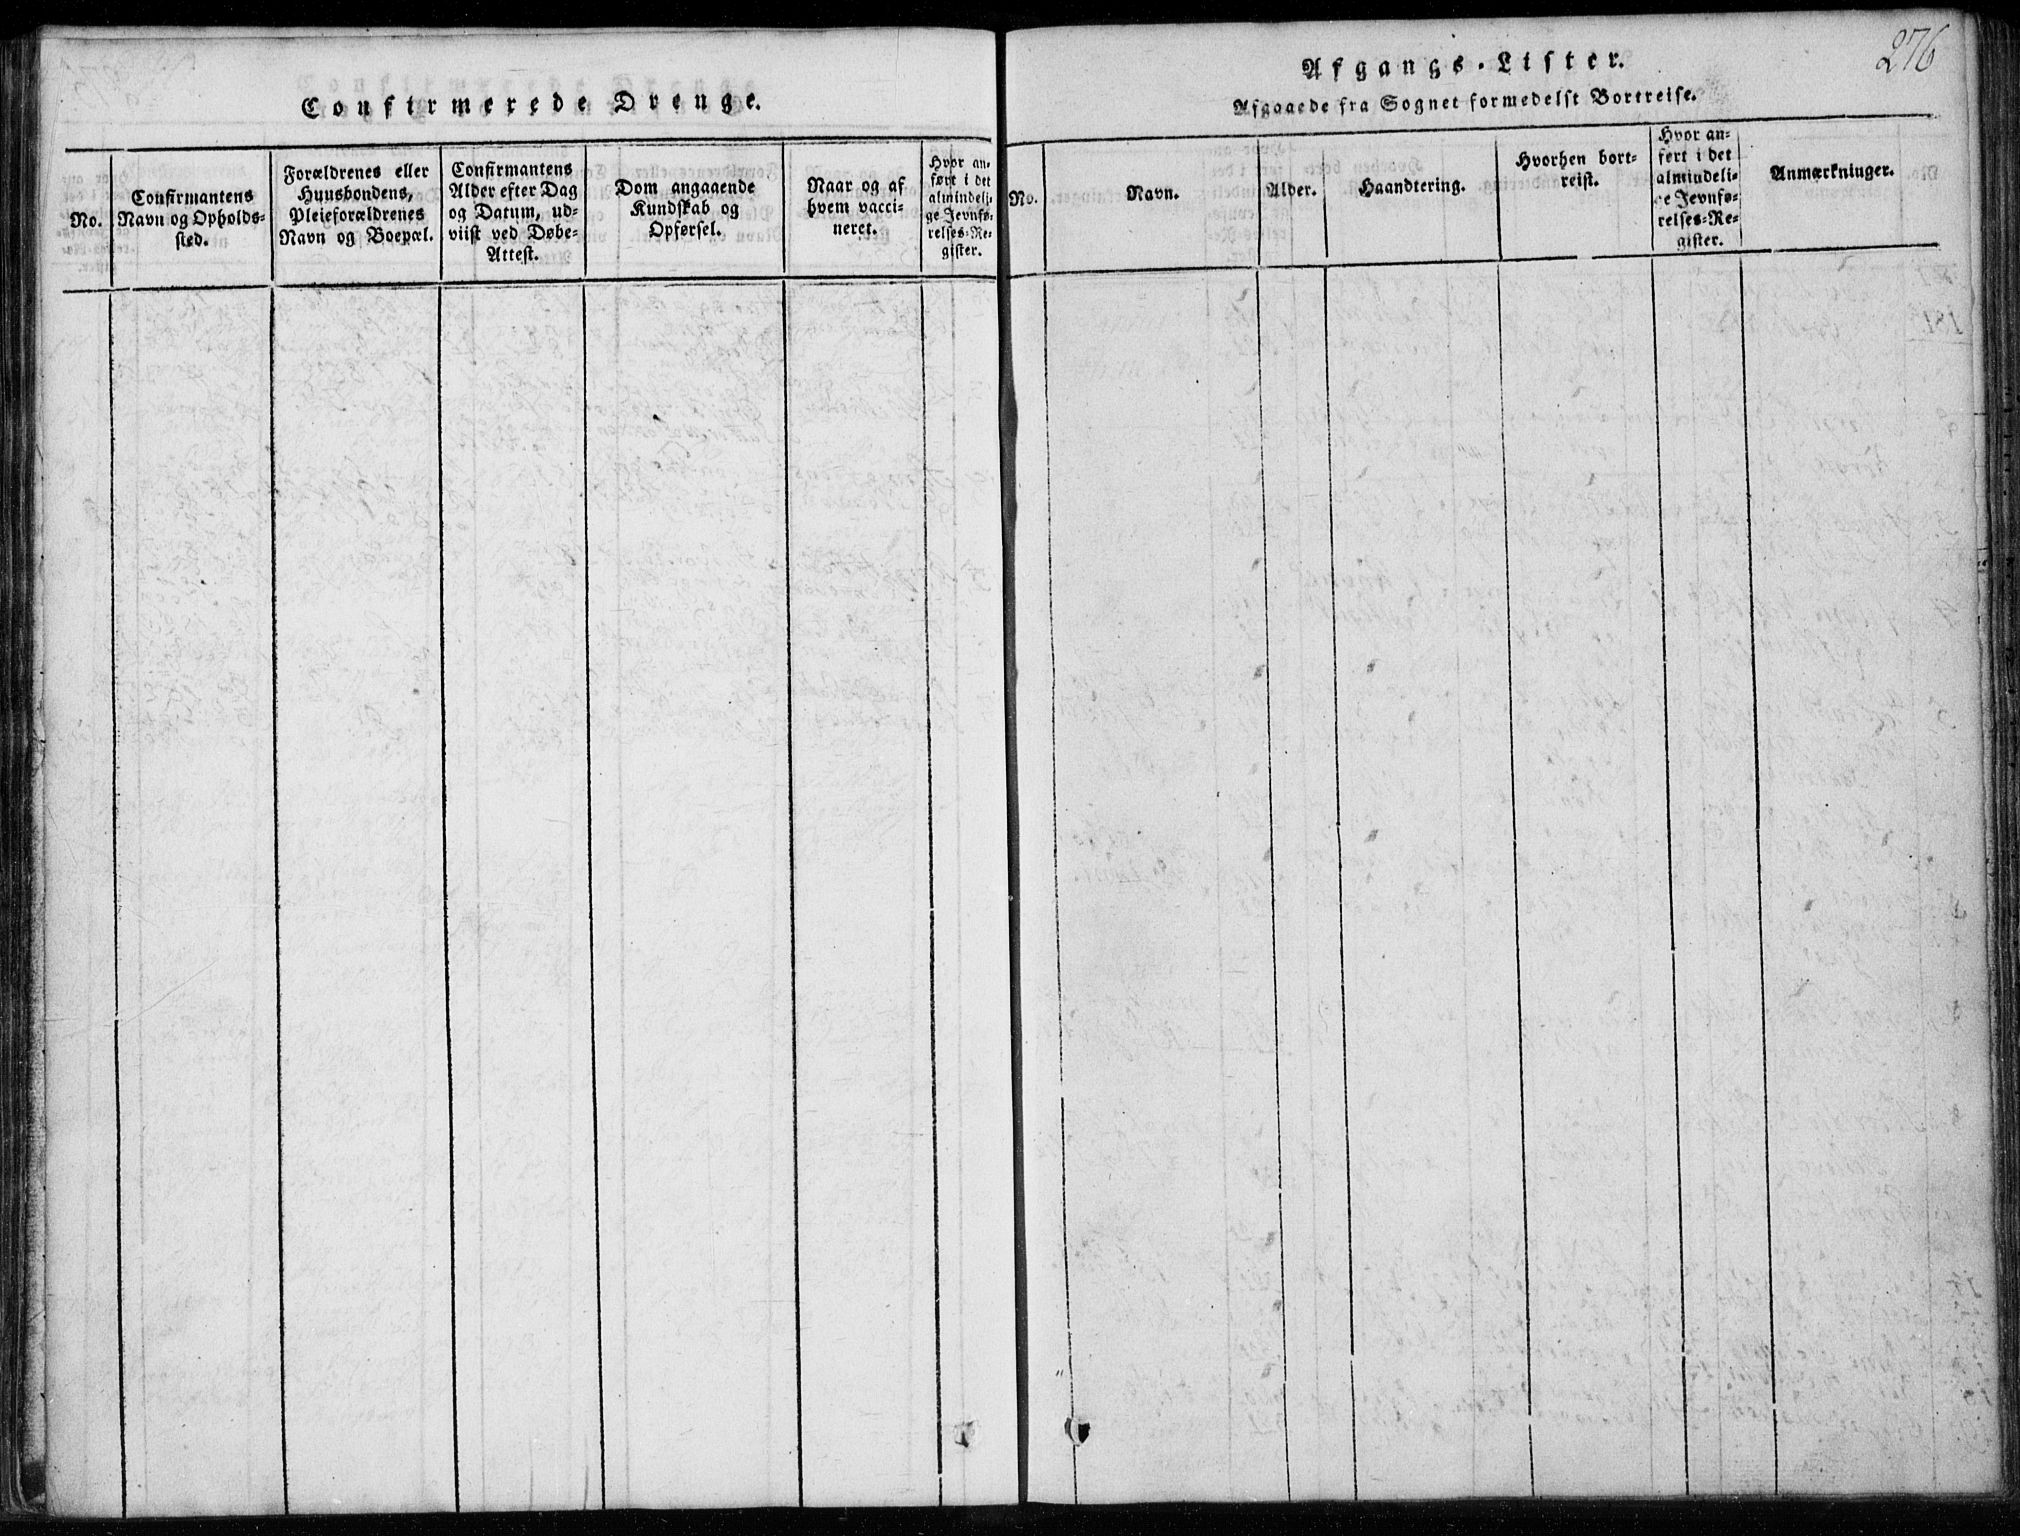 Confirmerede Drenge.
No.
Confirmantens
Navn og Opholds-
sted.
Forældrenes eller
Huusbondens,
Pleieforældrenes
Navn og Boepæl.
Confirmantens
Alder efter Dag
og Datum, ud-
viist ved Døbe-
Attest.
Dom angaaende
Kundskab og
Opførsel.
Naar og af
hvem vacci-
neret.
Hvor an-
ført i det
almindeli-
ge Jevnfø-
relses-Re-
gister.
276
Afgangs-Lister.
Afgaaede fra Sognet formedelst Bortreise.
No.
Navn.
Alder.
Haandtering.
Hvorhen bort-
reist.
Hvor an-
ført i det
almindeli-
ge Jevnfø-
relses-Re-
gister.
Anmærkninger.